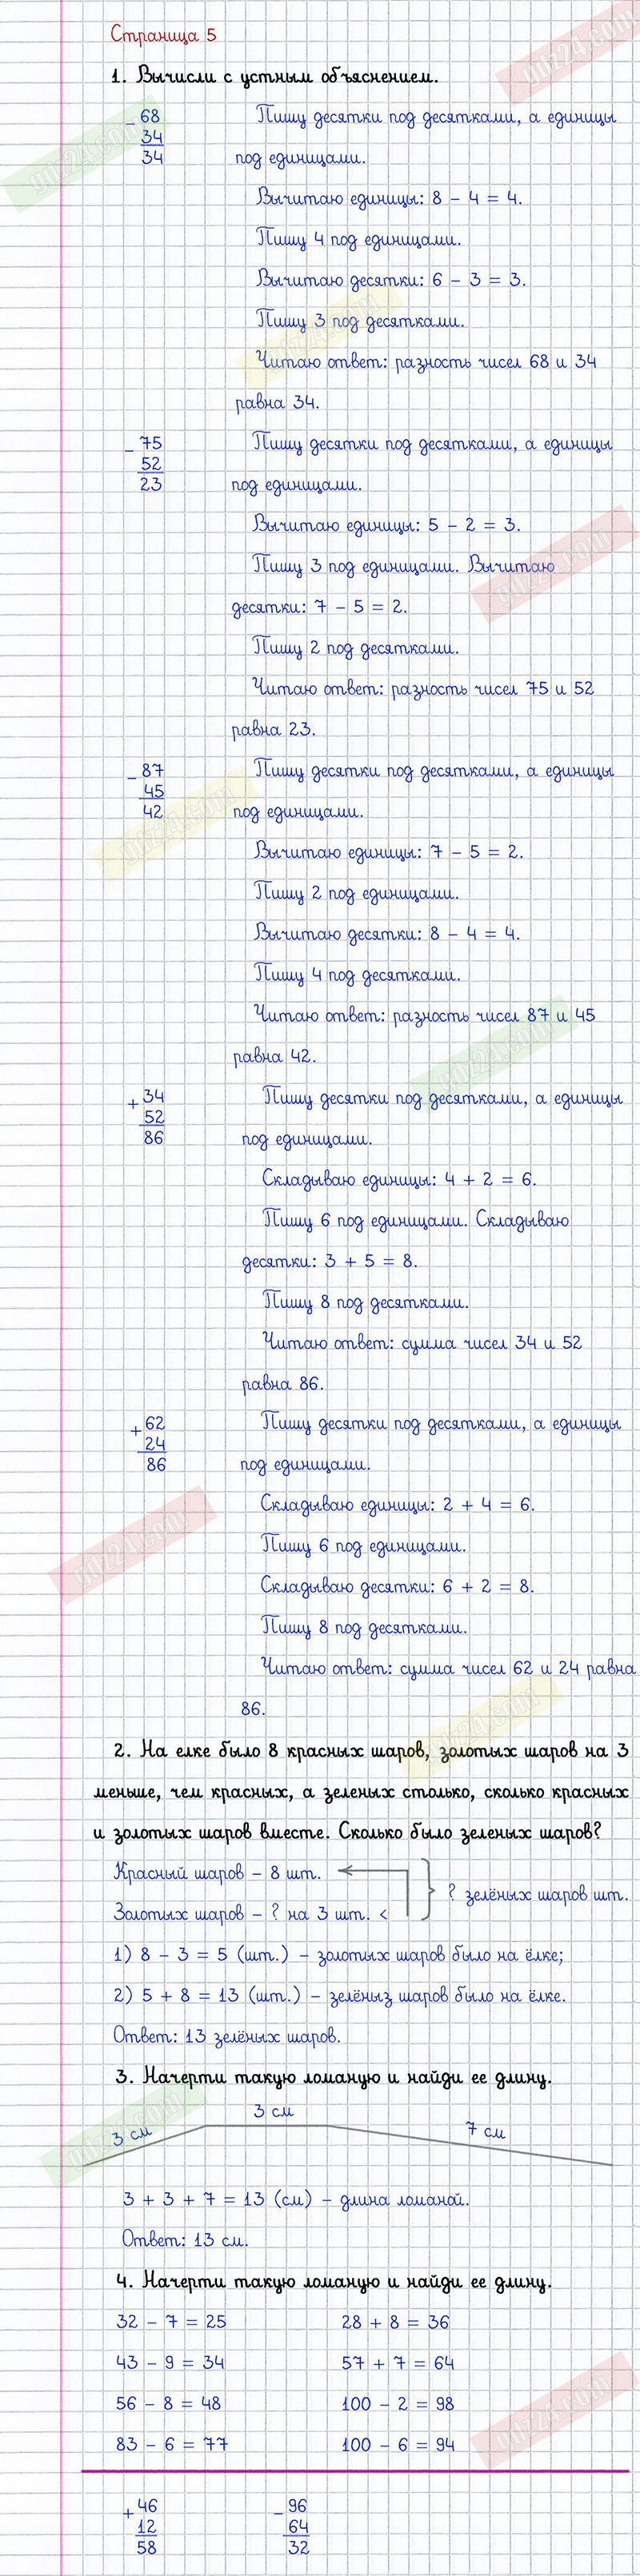 Страница 5
1. Вычисли с устным объяснением.
- 68
34
34
Пишу десятки под десятками, а единицы
под единицами.
Вычитаю единицы: 8 - 4 = 4.
Пишу 4 под единицами.
Вычитаю десятки: 6 - 3 = 3.
Пишу 3 под десятками.
Читаю ответ: разность чисел 68 и 34
равна 34.
- 75
52
23
Пишу десятки под десятками, а единицы
под единицами.
Вычитаю единицы: 5 - 2 = 3.
Пишу 3 под единицами. Вычитаю
десятки: 7 - 5 = 2.
Пишу 2 под десятками.
Читаю ответ: разность чисел 75 и 52
равна 23.
- 87
45
42
Пишу десятки под десятками, а единицы
под единицами.
Вычитаю единицы: 7 - 5 = 2.
Пишу 2 под единицами.
Вычитаю десятки: 8 - 4 = 4.
Пишу 4 под десятками.
Читаю ответ: разность чисел 87 и 45
равна 42.
+ 34
52
86
Пишу десятки под десятками, а единицы
под единицами.
Складываю единицы: 4 + 2 = 6.
Пишу 6 под единицами. Складываю
десятки: 3 + 5 = 8.
Пишу 8 под десятками.
Читаю ответ: сумма чисел 34 и 52
равна 86.
+ 62
24
86
Пишу десятки под десятками, а единицы
под единицами.
Складываю единицы: 2 + 4 = 6.
Пишу 6 под единицами.
Складываю десятки: 6 + 2 = 8.
Пишу 8 под десятками.
Читаю ответ: сумма чисел 62 и 24 равна
86.
2. На елке было 8 красных шаров, золотых шаров на 3
меньше, чем красных, а зеленых столько, сколько красных
и золотых шаров вместе. Сколько было зеленых шаров?
Красный шаров - 8 шт.
? зелёных шаров шт.
Золотых шаров - ? на 3 шт. <
1) 8 - 3 = 5 (шт.) - золотых шаров было на ёлке;
2) 5 + 8 = 13 (шт.) - зелёныз шаров было на ёлке.
Ответ: 13 зелёных шаров.
3. Начерти такую ломаную и найди ее длину.
3 см 3 см 7 см
3 + 3 + 7 = 13 (см) - длина ломаной.
Ответ: 13 см.
4. Начерти такую ломаную и найди ее длину.
32 - 7 = 25 28 + 8 = 36
43 - 9 = 34 57 + 7 = 64
56 - 8 = 48 100 - 2 = 98
83 - 6 = 77 100 - 6 = 94
+ 46 - 96
12 64
58 32
gdz24.com
gdz24.com
gdz24.com
gdz24.com
gdz24.com
gdz24.com
gdz24.com
gdz24.com
gdz24.com
gdz24.com